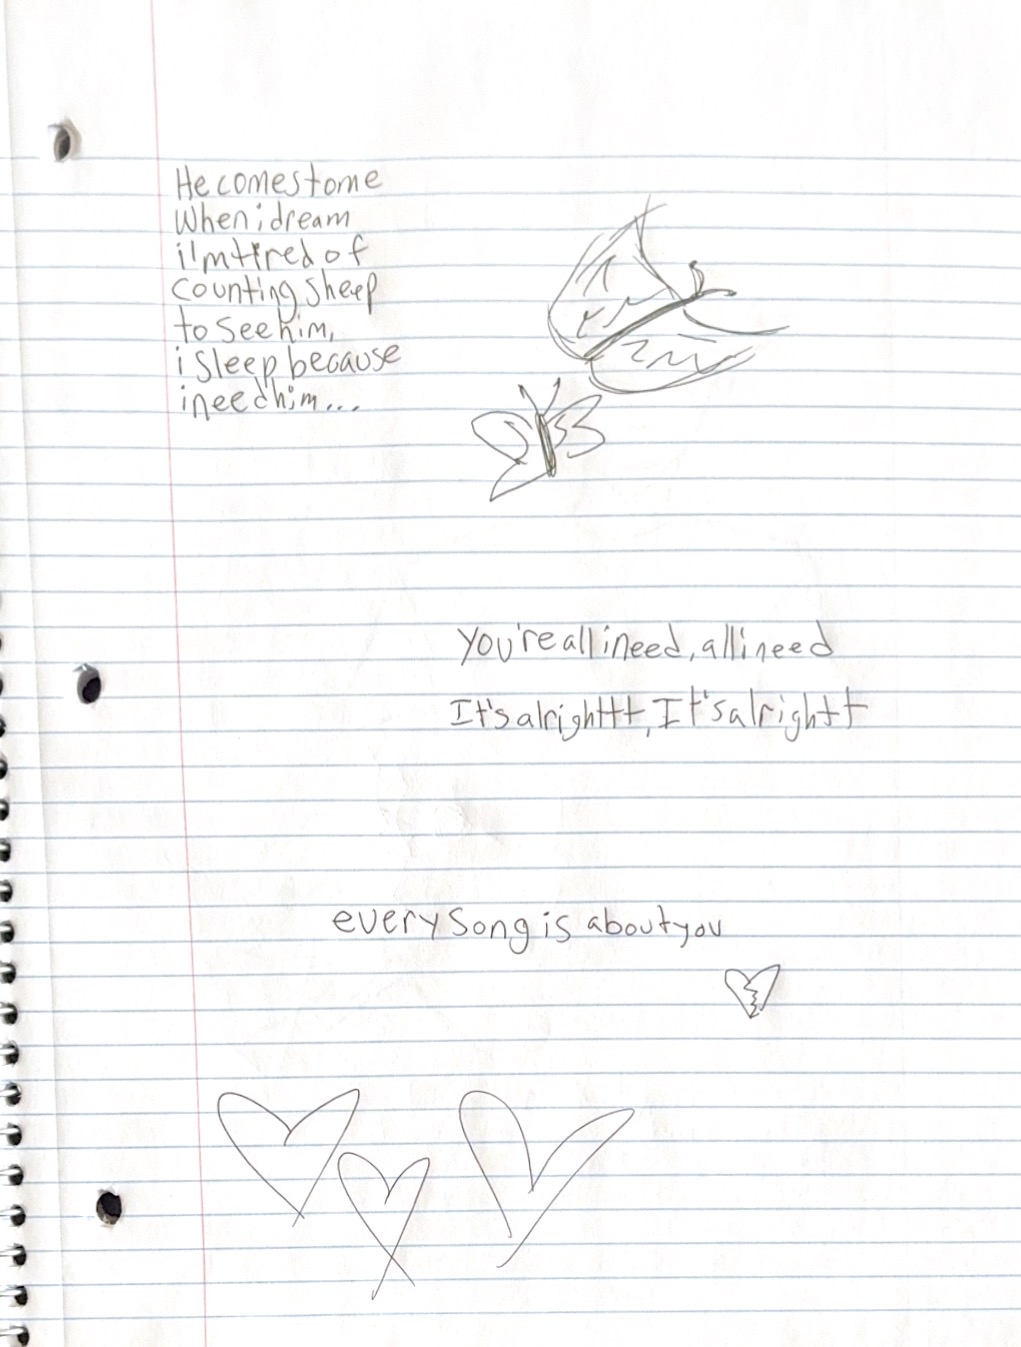 He comes to me
When i dream
i'm tired of
counting sheep
to see him,
i sleep because
i need him...
you're all i need, all i need
It's alrighttt, It's alrightt
every song is about you